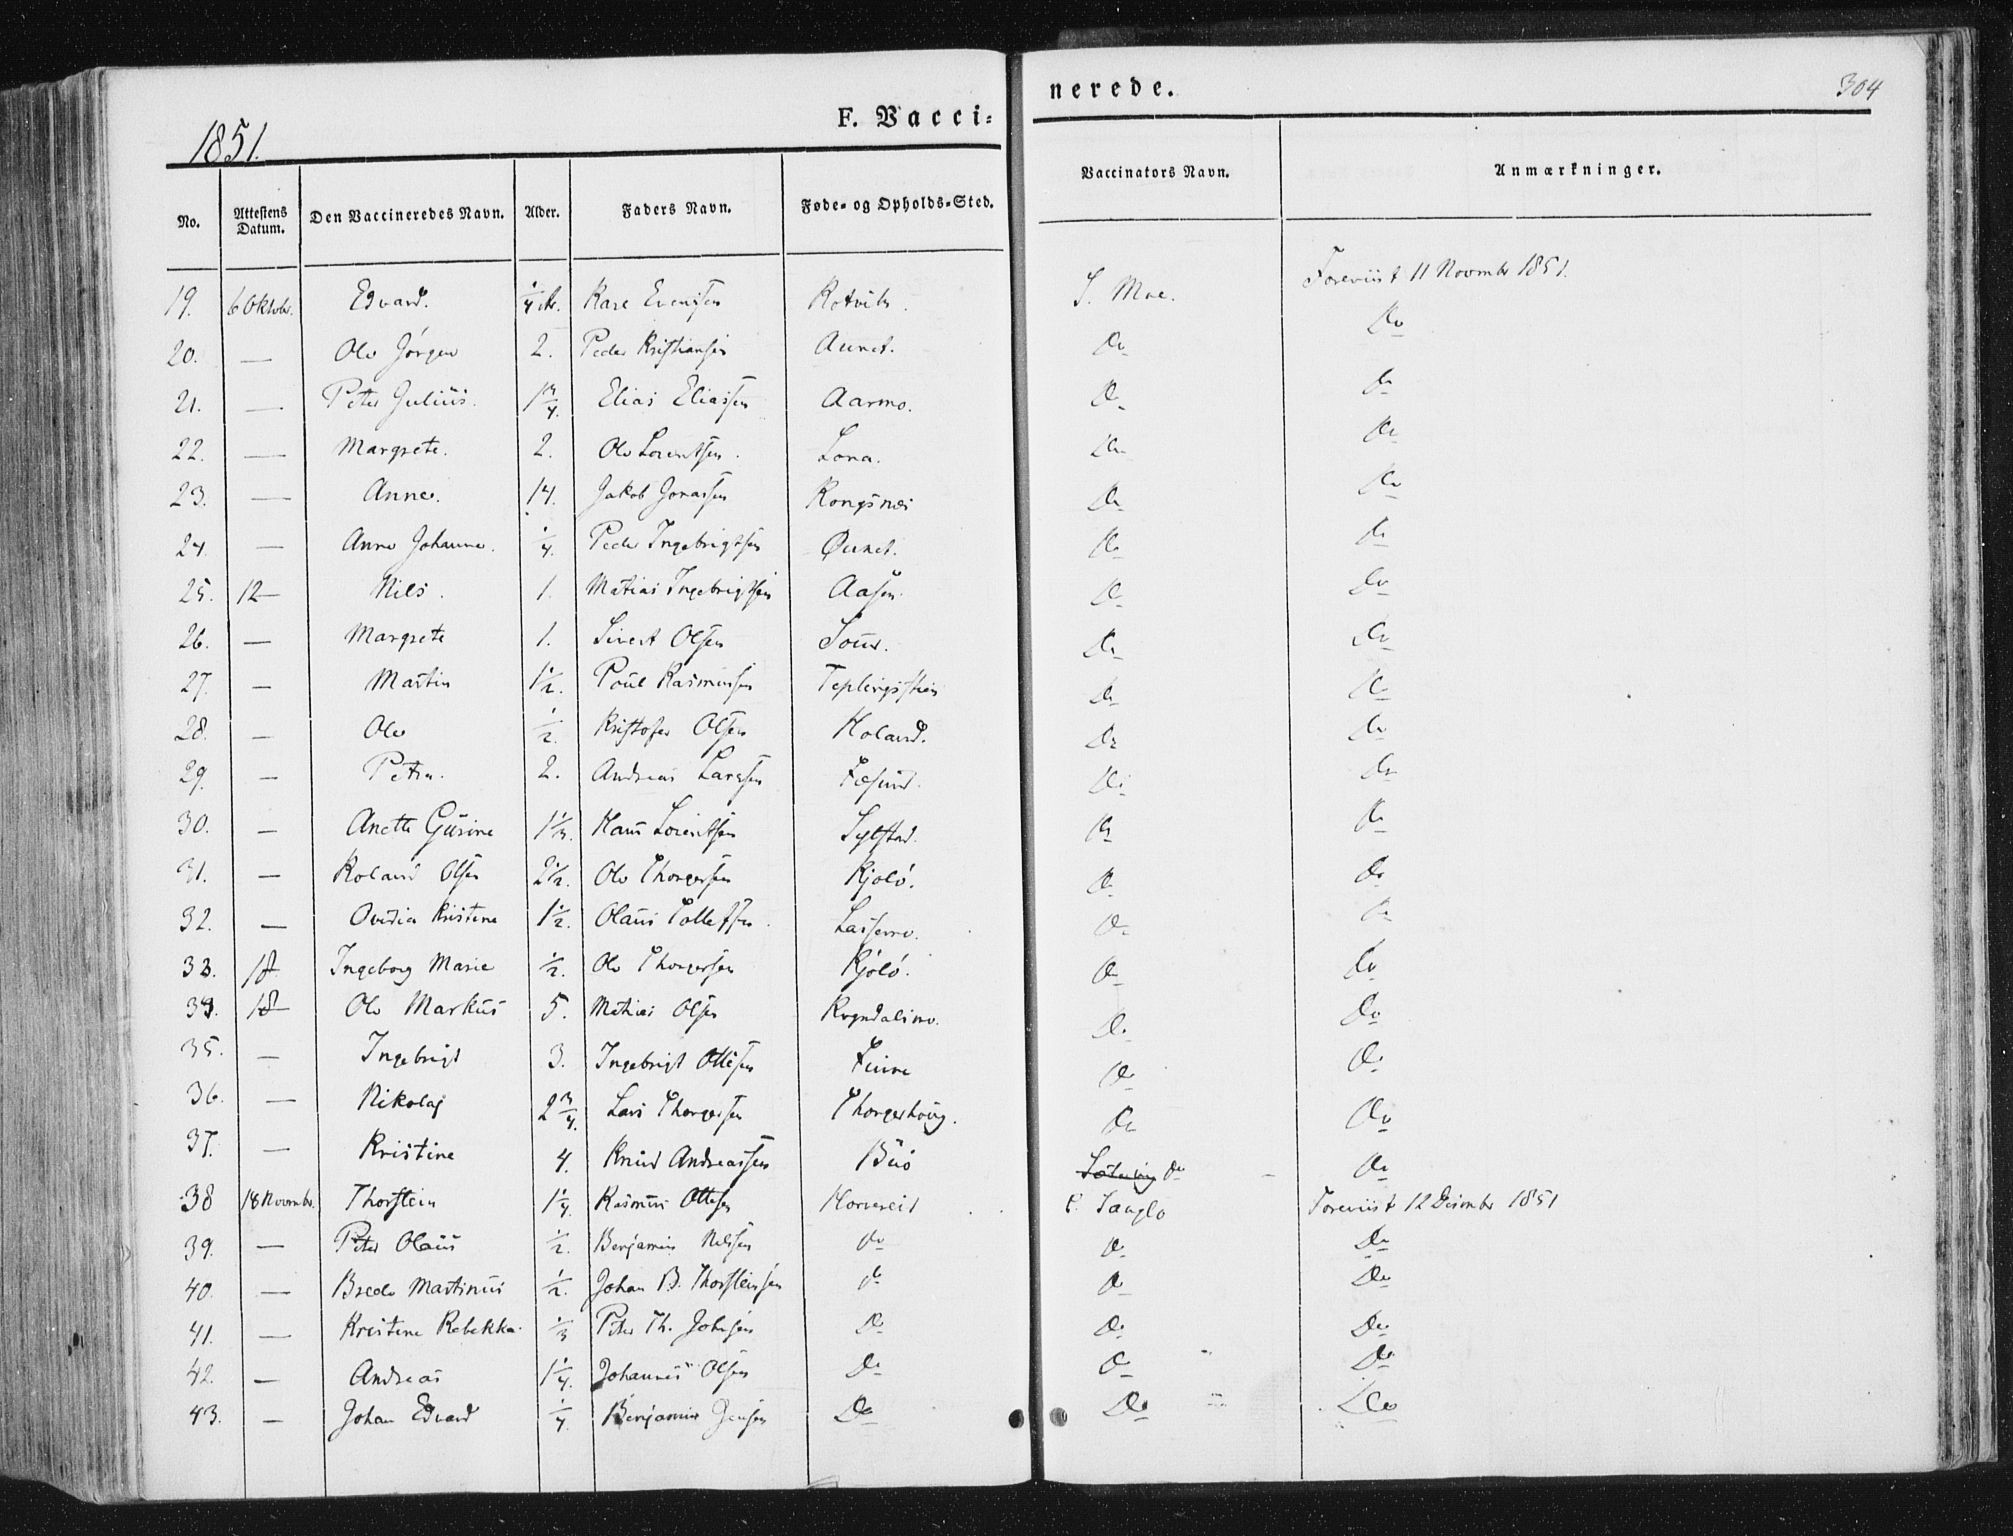 1851.
F. Vacci=
nerede.
304
No. Attestens Datum. Den Vaccineredes Navn. Alder. Faders Navn. Føde- og Opholds-Sted. Vaccinators Navn. Anmærkninger.
19. 6 Oktobr. Edvard. 1/4 Kare Evensen Rotvik. S. Moe. Foreviist 11 Novmbr 1851.
20. — Ole Jørgen 2. Peder Kristiansen Aunet. Do Do
21. — Peter Julius. 1 3/4. Elias Eliassen Aarmo. Do Do
22. — Margrete. 2. Ole Lorentsen. Lona. Do Do
23. — Anne. 14. Jakob Jonassen Kongsnæs Do Do
24. — Anne Johanne. 1/4. Peder Ingebrigtsen Ounet. Do Do
25. 12— Nils. 1. Matias Ingebrigtsen Aasen. Do Do
26. — Margrete 1. Sivert Olsen Do Do
27. — Martin 1 1/2. Poul Rasmussen Teplingsskien Do Do
28. — Ole 1/2. Kristofer Olsen Holand. Do Do
29. — Petra. 2. Andreas Larssen Do Do
30. — Anette Gurine 1 1/3. Hans Lorentsen Sylstad. Do Do
31. — Roland Olsen 2 1/2. Ole Thorgersen Kjølø. Do Do
32. — Ovidia Kristine 1 1/2. Olaus Tollefsen. Lassemo. Do Do
33. 18 Ingeborg Marie 1/2. Ole Thorgersen Kjølø. Do Do
34. 18— Ole Markus 5. Mathias Olsen Rogndalsmo. Do Do
35. — Ingebrigt 3. Ingebrigt Ottesen Finne Do Do
36. — Nikolaj 2 3/4. Lars Thorgersen Thorgershoug. Do Do
37. — Kristine 4. Knud Andreassen Buø Do Do
38 18 Novmbr. Thorstein 1 1/4. Rasmus Ottesen Horvereid C. Tanglo Foreviist 12 Desmbr 1851
39. — Peter Olaus 1/2. Benjamin Nilssen do Do Do
40. — Brede Martinus 1/2. Johan B. Thorsteinsen do Do Do
41. — Kristine Rebekka. 1/3 Peter Th. Johnsen Do Do Do
42. — Andreas 1 1/4. Johannes Olsen Do Do Do
43. — Johan Edvard 1/4. Benjamin Jensen Do Do Do